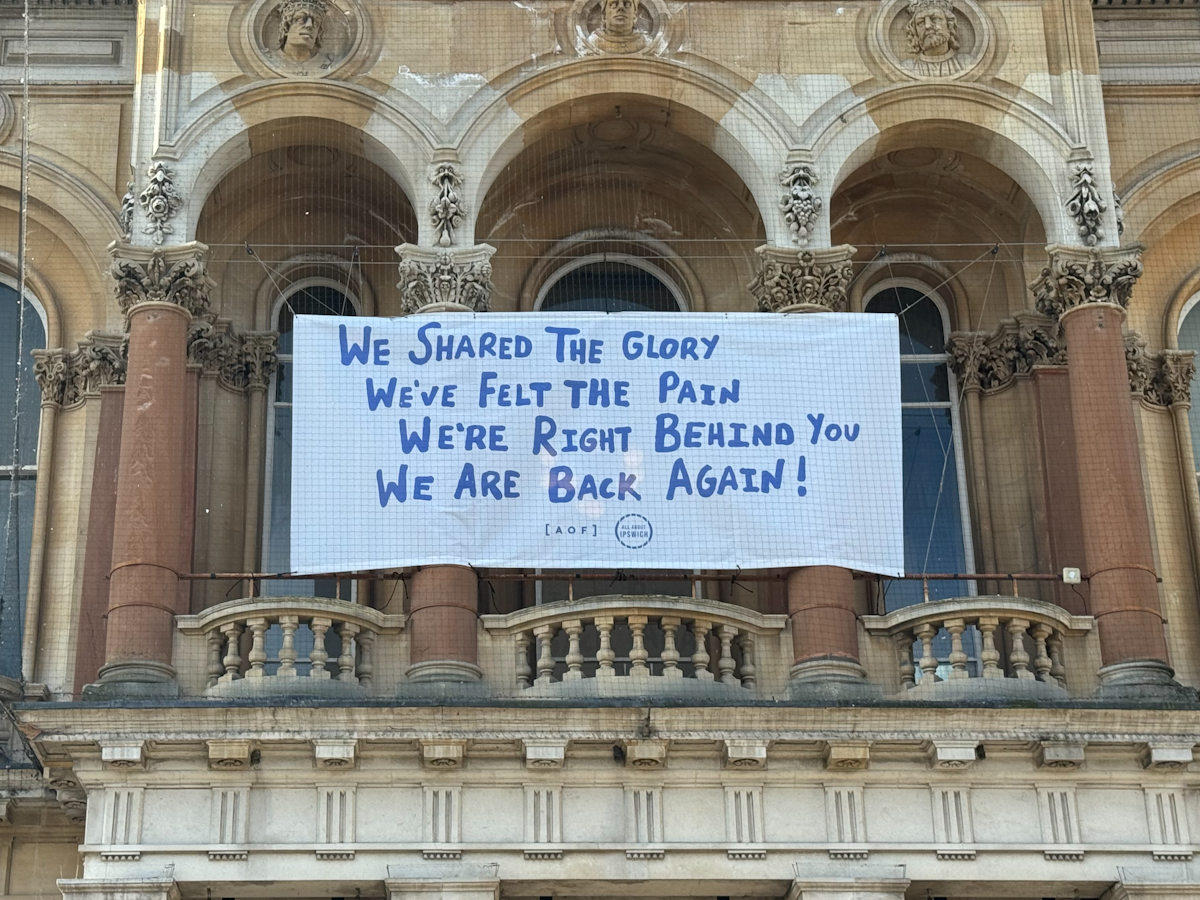 We Shared The Glory
We've Felt The Pain
We're Right Behind You
We Are Back Again!
[AOF]
ALL ABOUT
IPSWICH